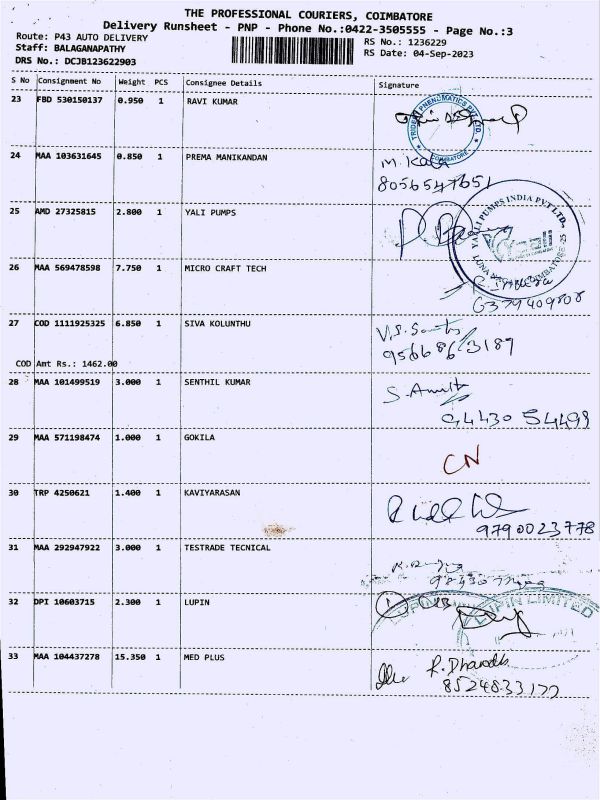 THE PROFESSIONAL COURIERS, COIMBATORE
Delivery Runsheet - PNP - Phone No.:0422-3505555 - Page No.:3
Route: P43 AUTO DELIVERY
RS No.: 1236229
Staff: BALAGANAPATHY
RS Date: 04-Sep-2023
DRS No.: DCJB123622903
S No Consignment No Weight PCS Consignee Details Signature
23 FBD 530150137 0.950 1 RAVI KUMAR
24 MAA 103631645 0.850 1 PREMA MANIKANDAN M. Kala
8056547651
25 AMD 27325815 2.800 1 YALI PUMPS
YAALI PUMPS INDIA PVT LTD.,
Yaali
26 MAA 569478598 7.750 1 MICRO CRAFT TECH
6379409808
27 COD 1111925325 6.850 1 SIVA KOLUNTHU
9566863189
COD Amt Rs.: 1462.00
28 MAA 101499519 3.000 1 SENTHIL KUMAR
94430 54499
29 MAA 571198474 1.000 1 GOKILA CN
30 TRP 4250621 1.400 1 KAVIYARASAN
9790023778
31 MAA 292947922 3.000 1 TESTRADE TECNICAL
32 DPI 10603715 2.300 1 LUPIN
LUPIN LIMITED
33 MAA 104437278 15.350 1 MED PLUS